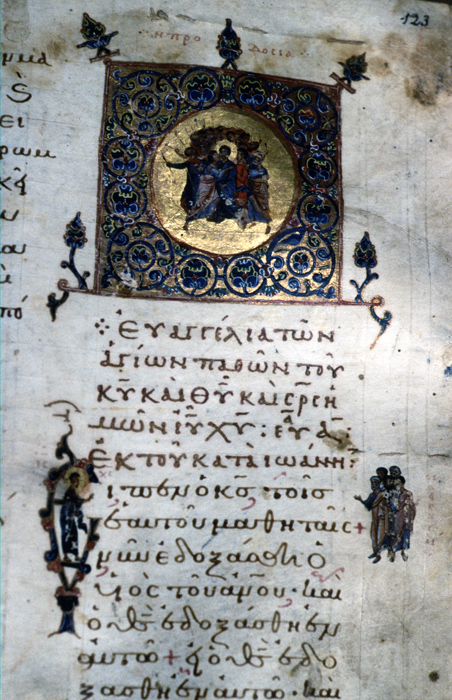 123
ἡ προ δοσία
Εὐαγγέλια τῶν
ἁγίων παθῶν τοῦ
κ̅υ̅ καὶ θ̅υ̅ καὶ σ̅ρ̅ς ἡ
μῶν ι̅υ̅ χ̅υ̅ : εὐα α :
Ἐκ τοῦ κατὰ Ἰωάννη :
ιπεν ὁ κ̅ς̅ τοῖς
ἑαυτοῦ μαθηταῖς +
νῦν ἐδοξάσθη ὁ
υἱὸς τοῦ ἀ̅ν̅ου̅ · καὶ
ὁ θ̅ς̅ ἐδοξάσθη ἐν
αὐτῶ + εἰ ὁ θ̅ς̅ ἐδο
ξάσθη ἐν αὐτῶ · καὶ